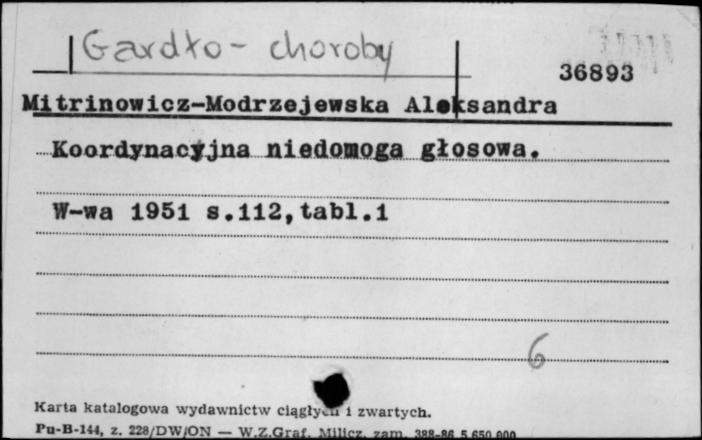 Gardło - choroby
36893
Mitrinowicz-Modrzejewska Aleksandra
Koordynacyjna niedomoga głosowa.
W-wa 1951 s.112,tabl.1
6
Karta katalogowa wydawnictw ciągłych i zwartych.
Pu-B-144, z. 228/DW/ON — W.Z.Graf. Milicz, zam. 388-86 5.650.000